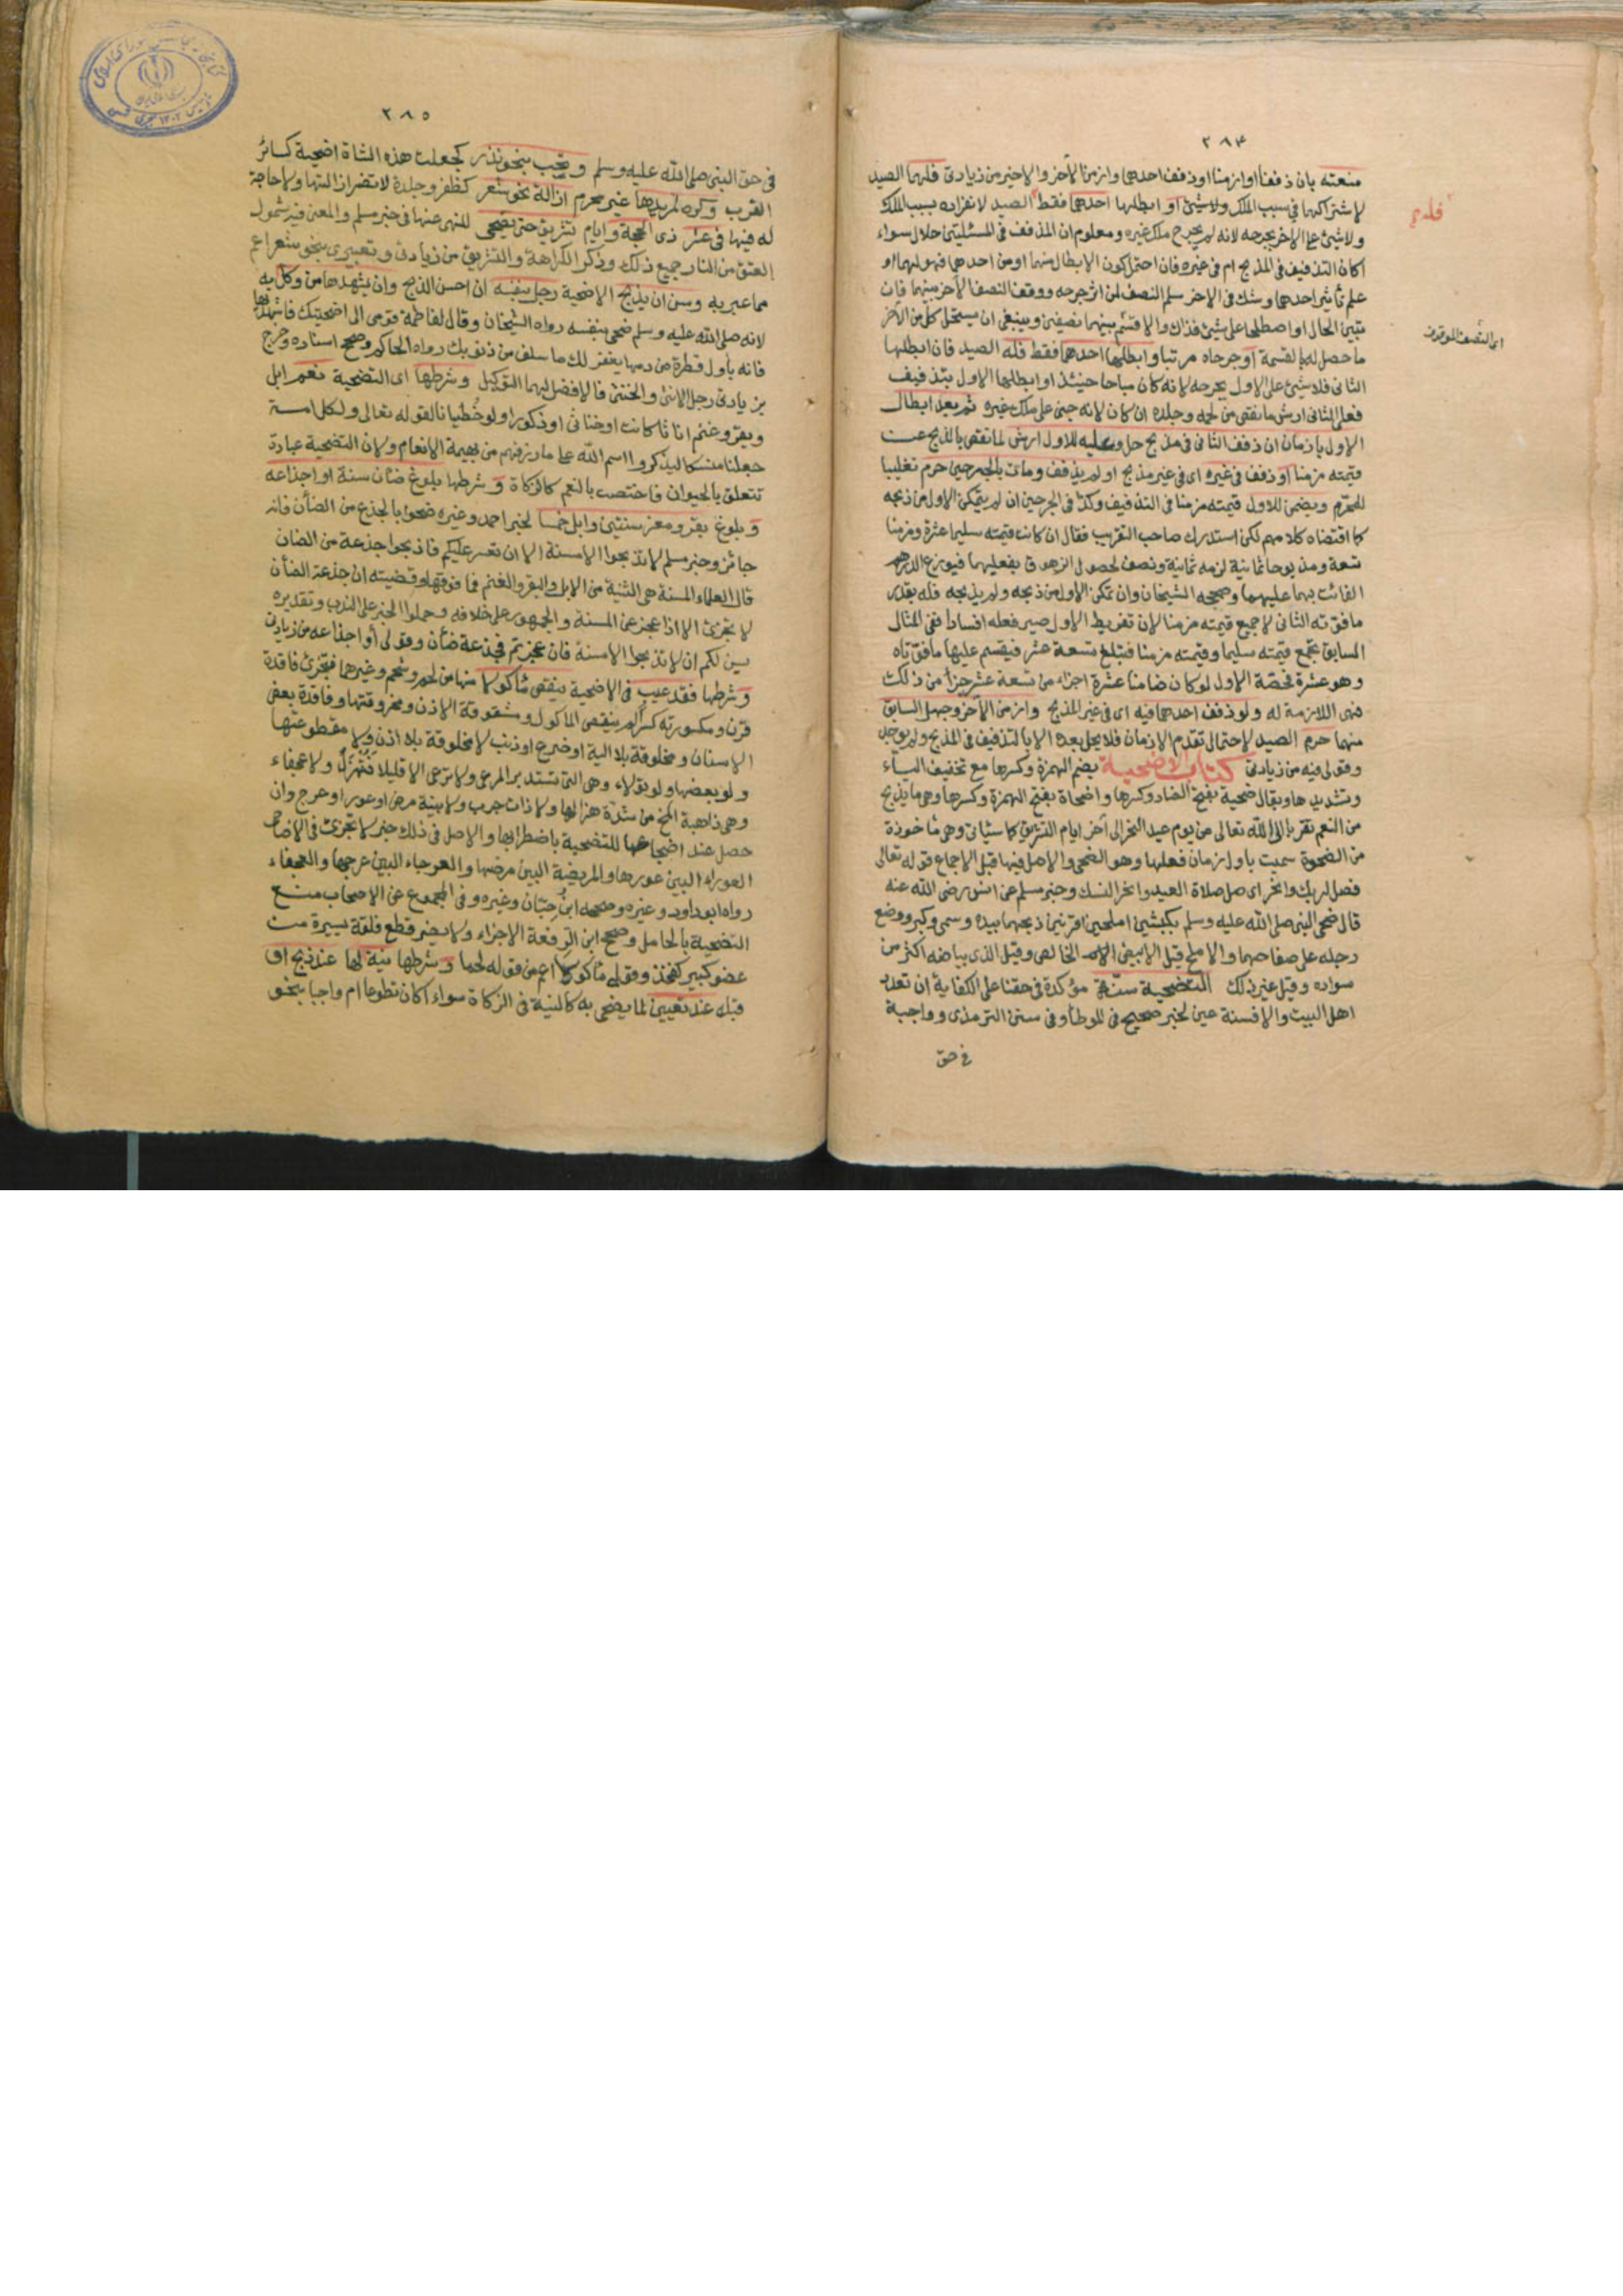 ٢٨٤
منعته بان ذففا او ازمنا او ذفف احدهما وازمن الآخر والاخير من زيادتى فلهما الصيد
لاشتراكهما في سبب الملك ولا شئ او ابطلها احدهما فقط الصيد لانفراده بسبب الملك
ولا شئ على الاخر بجرحه لانه لم يجرح ملك غيره ومعلوم ان المذفف فى المسئلتين حلال سواء
اكان التذفيف فى المذبح ام فى غيره فان احتمل كون الابطال منهما او من احدهما فهو لهما او
علم تأثير احدهما وشك فى الاخر سلم النصف لمن اثر جرحه ووقف النصف الآخر بينهما فان
تبين الحال او اصطلحا على شئ فذاك والا قسم بينهما نصفين وينبغى ان يستحل كل من الآخر
اى النصف الموقوف
ما حصل له بالقسمة او جرحاه مرتبا وابطلها احدهما فقط فله الصيد فان ابطلها
الثانى فلا شئ على الاول بجرحه لانه كان مباحا حينئذ او ابطلها الاول بتذفيف
فعلى الثانى ارش ما نقص من لحمه وجلده ان كان لانه جنى على ملك غيره ثم بعد ابطال
الاول بازمان ان ذفف الثانى فى مذبح حل وعليه للاول ارش لما نقص بالذبح عن
قيمته مزمنا او ذفف فى غيره اى فى غير مذبح او لم يذفف ومات بالجرحين حرم تغليبا
للمحرم ويضمن للاول قيمته مزمنا فى التذفيف وكذا فى الجرحين ان لم يتمكن الاول من ذبحه
كما اقتضاه كلامهم لكن استدرك صاحب التقريب فقال ان كانت قيمته سليما عشرة ومزمنا
تسعة ومذبوحا ثمانية لزمه ثمانية ونصف لحصول الزهوق بفعليهما فيوزع الدرهم
الفائت بهما عليهما وصححه الشيخان وان تمكن الاول من ذبحه ولم يذبحه فله بقدر
ما فوته الثانى لا جميع قيمته مزمنا لان تفريط الاول صير فعله افسادا ففى المثال
السابق تجمع قيمته سليما وقيمته مزمنا فتبلغ تسعة عشر فيقسم عليها ما فوتاه
وهو عشرة فحصة الاول لو كان ضامنا عشرة اجزاء من تسعة عشر جزأ من ذلك
فهى اللازمة له ولو ذفف احدهما فيه اى فى غير المذبح وازمن الآخر وجهل السابق
منهما حرم الصيد لاحتمال تقدم الازمان فلا يحل بعده الا بالتذفيف فى المذبح ولم يوجد
وقولى فيه من زيادتى كتاب الاضحية بضم الهمزة وكسرها مع تخفيف الياء
وتشديدها ويقال ضحية بفتح الضاد وكسرها واضحاة بفتح الهمزة وكسرها وهى ما يذبح
من النعم تقربا الى الله تعالى من يوم عيد النحر الى آخر ايام التشريق كما سيأتى وهى مأخوذة
من الضحوة سميت باول زمان فعلها وهو الضحى والاصل فيها قبل الاجماع قوله تعالى
فصل لربك وانحر اى صل صلاة العيد وانحر النسك وخبر مسلم عن انس رضى الله عنه
قال ضحى النبى صلى الله عليه وسلم بكبشين املحين اقرنين ذبحهما بيده وسمى وكبر ووضع
رجله على صفاحهما والاملح قيل الابيض الخالص وقيل الذى بياضه اكثر من
سواده وقيل غير ذلك التضحية سنة مؤكدة فى حقنا على الكفاية ان تعدد
اهل البيت والا فسنة عين لخبر صحيح فى الموطأ وفى سنن الترمذى وواجبة
فى حق
٢٨٥
فى حق النبى صلى الله عليه وسلم وتجب بنحو نذر كجعلت هذه الشاة اضحية كسائر
القرب وكره لمريدها غير محرم ازالة نحو شعر كظفر وجلدة لا تضر ازالتها ولا حاجة
له فيها فى عشر ذى الحجة وايام تشريق حتى يضحى للنهى عنها فى خبر مسلم والمعنى فيه شمول
العتق من النار جميع ذلك وذكر الكراهة والتشريق من زيادتى وتعبيرى بنحو شعر اعم
مما عبر به وسن ان يذبح الاضحية رجل بنفسه ان احسن الذبح وان يشهدها من وكل به
لانه صلى الله عليه وسلم ضحى بنفسه رواه الشيخان وقال لفاطمة قومى الى اضحيتك فاشهديها
فانه باول قطرة من دمها يغفر لك ما سلف من ذنوبك رواه الحاكم وصحح اسناده وخرج
بزيادتى رجل الانثى والخنثى فالافضل لهما التوكيل وشرطها اى التضحية نعم ابل
وبقر وغنم اناثا كانت او خناثى او ذكورا ولو خصيانا لقوله تعالى ولكل امة
جعلنا منسكا ليذكروا اسم الله على ما رزقهم من بهيمة الانعام ولان التضحية عبادة
تتعلق بالحيوان فاختصت بالنعم كالزكاة وشرطها بلوغ ضان سنة او اجذاعه
وبلوغ بقر ومعز سنتين وابل خمسا لخبر احمد وغيره ضحوا بالجذع من الضأن فانه
جائز وخبر مسلم لا تذبحوا الا مسنة الا ان تعسر عليكم فاذبحوا جذعة من الضان
قال العلماء المسنة هى الثنية من الابل والبقر والغنم فما فوقها وقضيته ان جذعة الضأن
لا تجزئ الا اذا عجز عن المسنة والجمهور على خلافه وحملوا الخبر على الندب وتقديره
يسن لكم ان لا تذبحوا الا مسنة فان عجزتم فجذعة ضأن وقولى او اجذاعه من زيادتى
وشرطها فقد عيب فى الاضحية ينقص مأكولا منها من لحم وشحم وغيرهما فتجزئ فاقدة
قرن ومكسورته كسرا لم ينقص المأكول ومشقوقة الاذن ومخروقتها وفاقدة بعض
الاسنان ومخلوقة بلا الية او ضرع او ذنب لا مخلوقة بلا اذن ولا مقطوعتها
ولو بعضها ولو تولاء وهى التى تستدبر المرعى ولا ترعى الا قليلا فتهزل ولا عجفاء
وهى ذاهبة المخ من شدة هزالها ولا ذات جرب ولا بينة مرض او عور او عرج وان
حصل عند اضجاعها للتضحية باضطرابها والاصل فى ذلك خبر لا تجزئ فى الاضاحى
العوراء البين عورها والمريضة البين مرضها والعرجاء البين عرجها والعجفاء
رواه ابو داود وغيره وصححه ابن حِبّان وغيره وفى المجموع عن الاصحاب منع
التضحية بالحامل وصحح ابن الرفعة الاجزاء ولا يضر قطع فلقة يسيرة من
عضو كبير كفخذ وقولى مأكولا اعم من قوله لحما وشرطها نية لها عند ذبح او
قبله عند تعيين لما يضحى به كالنية فى الزكاة سواء اكان تطوعا ام واجبا بنحو